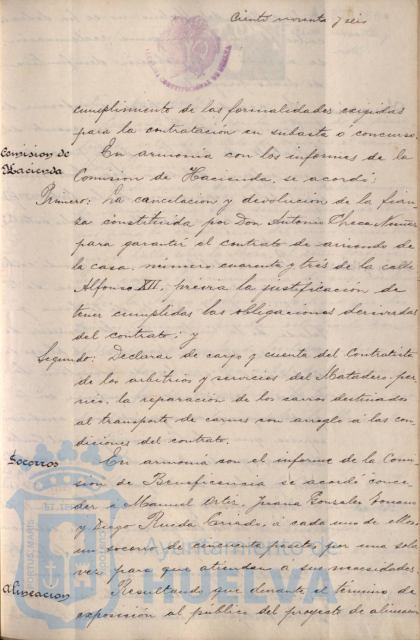 Ciento noventa y seis
cumplimiento de las formalidades exigidas
para la contratación en subasta o concurso.
Comision de
Hacienda
En armonía con los informes de la
Comision de Hacienda, se acordó:
Primero: La cancelación y devolución de la fian-
za constituida por Don Antonio Checa Nuñez
para garantir el contrato de arriendo de
la casa, número cuarenta y tres de la calle
Alfonso XII, previa la justificación de
tener cumplidas las obligaciones derivadas
del contrato; y
Segundo: Declarar de cargo y cuenta del Contratista
de los arbitrios y servicios del Matadero
la reparación de los carros destinados
al transporte de carnes con arreglo á las con-
diciones del contrato.
Socorros
En armonía con el informe de la Comi-
sion de Beneficencia se acordó conce-
der a Manuel Ortiz, Juana Gonzalez
y Diego Rueda Criado, á cada uno de ellos
un socorro de cincuenta pesetas por una sola
vez para que atiendan a sus necesidades.
Alineacion
Resultando que durante el término de
exposición al público del proyecto de alinea-
Ayuntamiento de
HUELVA